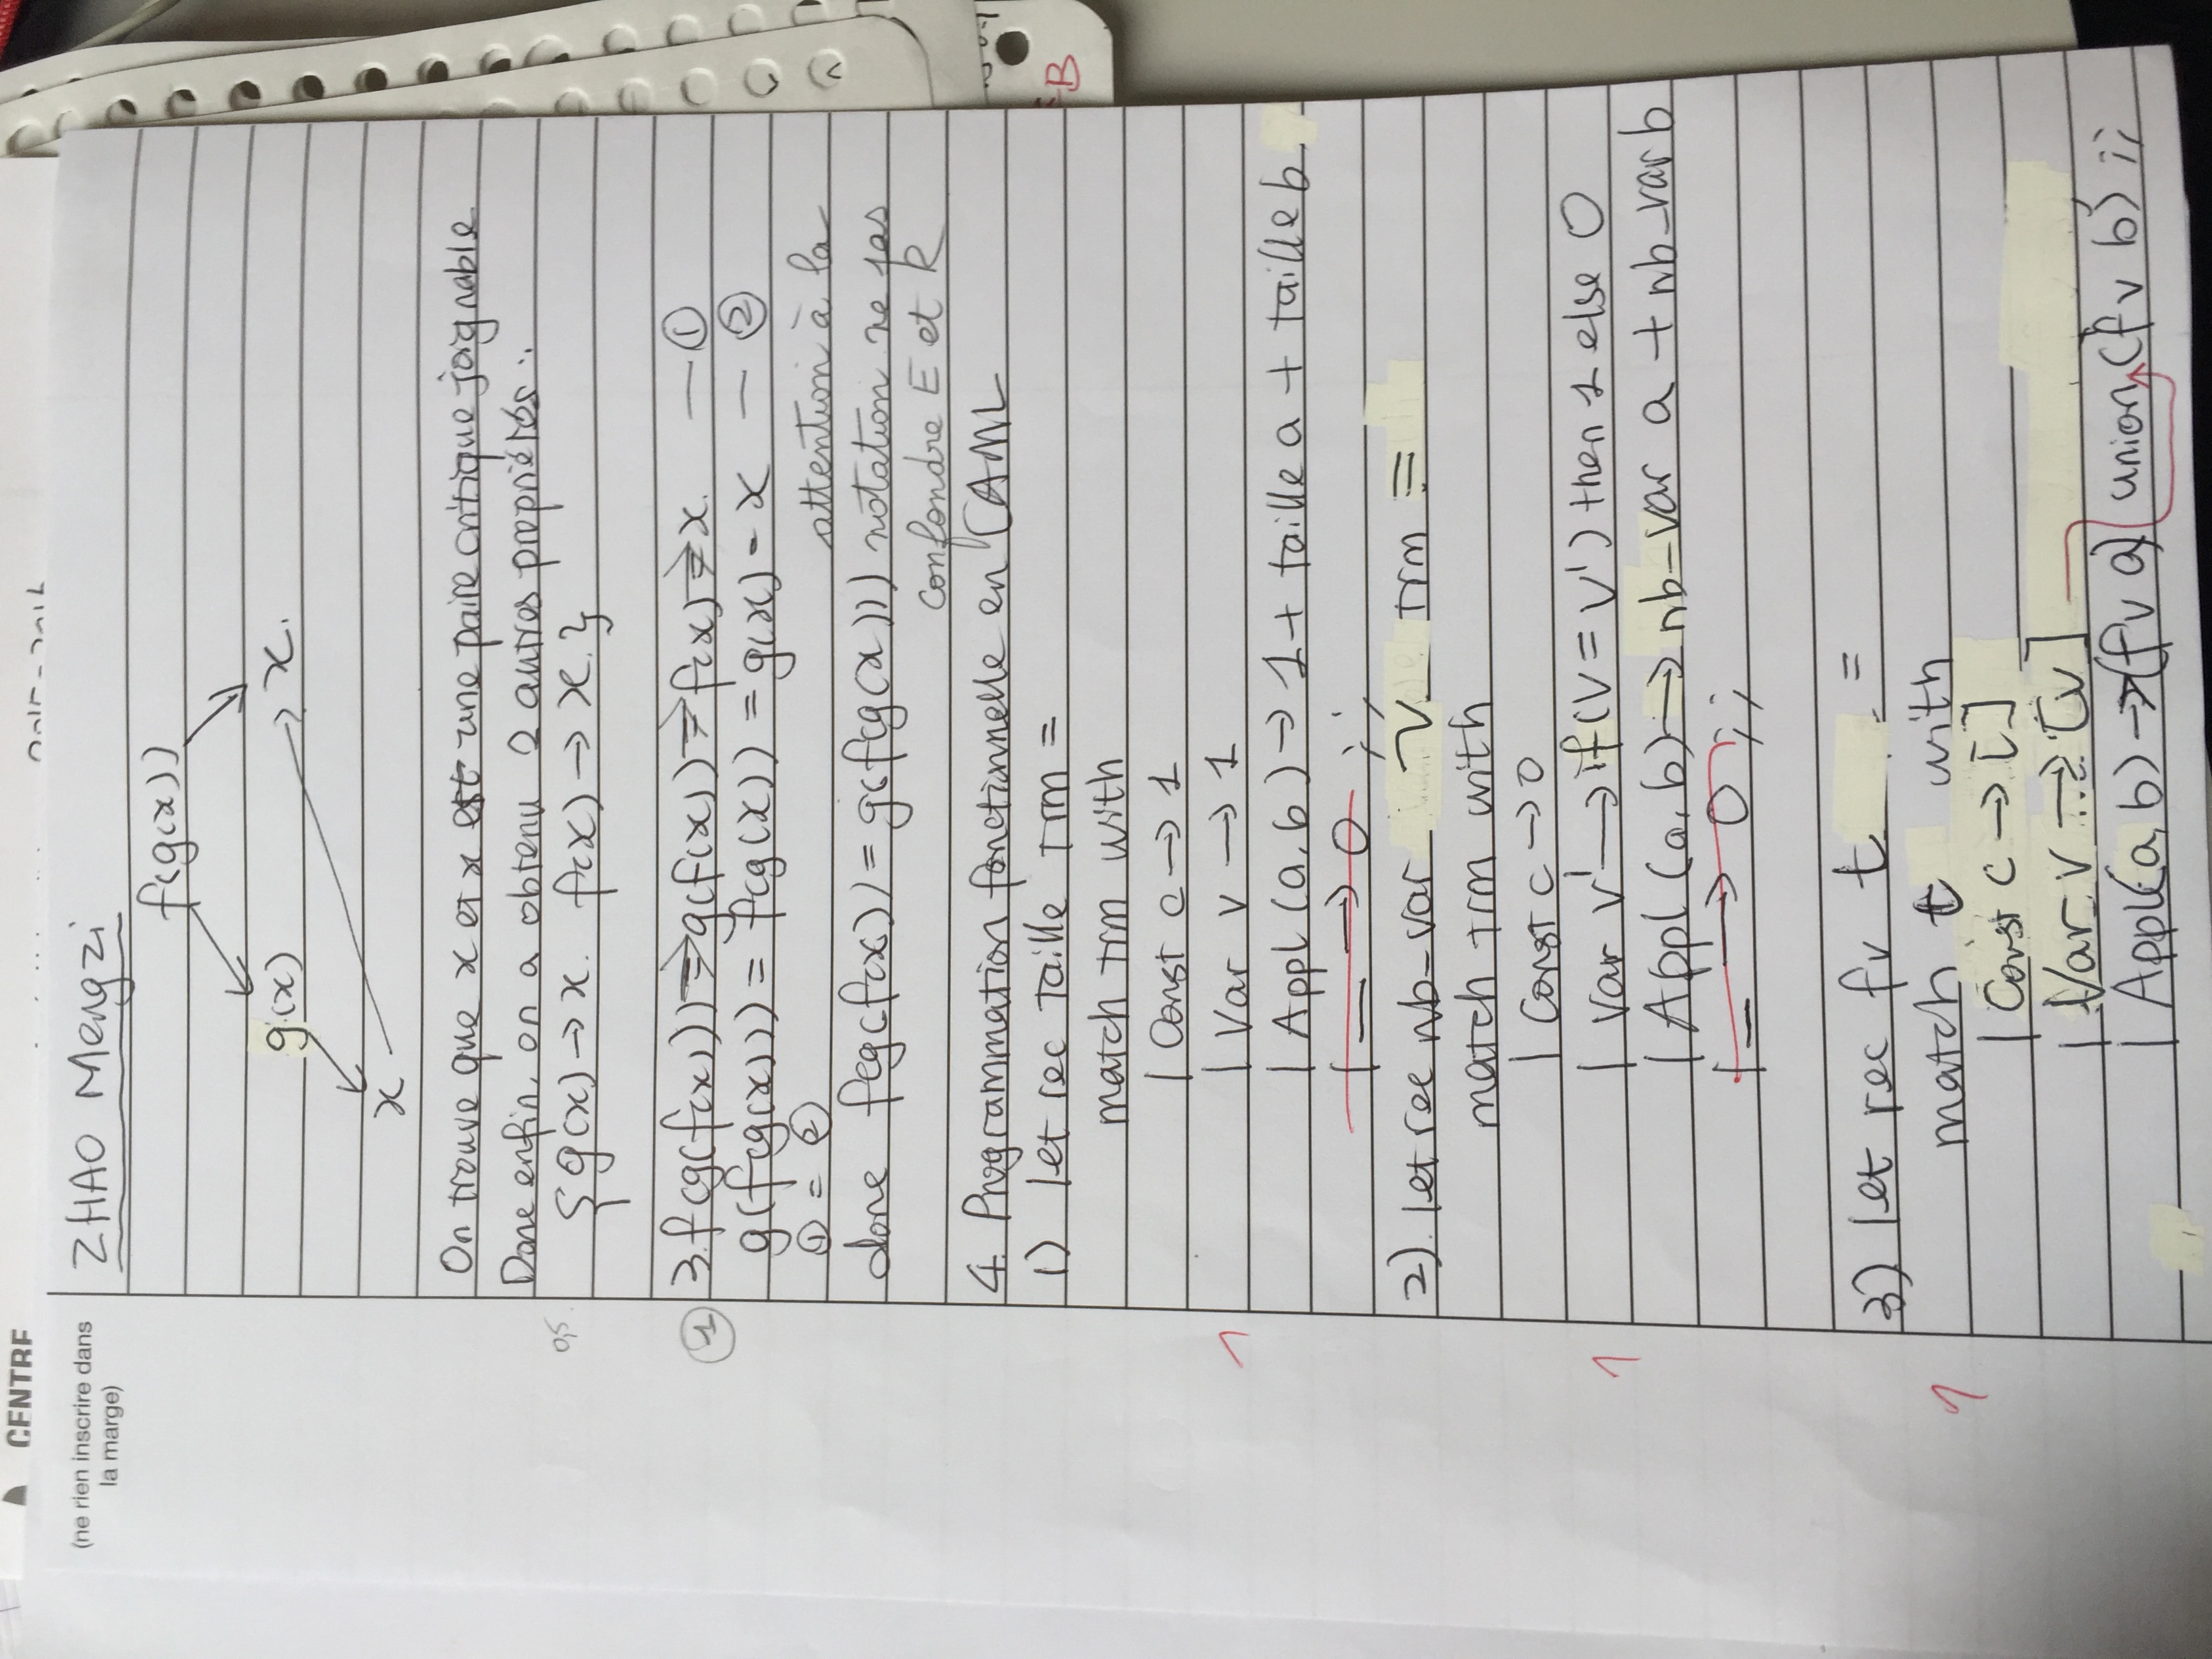 CENTRE
2015-2016
(ne rien inscrire dans
la marge)
ZHAO Mengzi
f(g(x))
g(x) x.
x
On trouve que x et x est une paire critique joignable
Donc enfin, on a obtenu 2 autres propriétés :
0,5 { g(x) → x. f(x) → x. }
1 3. f(g(f(x))) → g(f(x)) → f(x) → x. — ①
g(f(g(x))) = f(g(x)) = g(x) = x — ②
① = ②
attention à la
donc f(g(f(x)) = g(f(g(x))) notation ne pas
confondre E et R
4. Programmation fonctinnelle en CAML
1) let rec taille trm =
B
match trm with
| Const c → 1
1 | Var v → 1
| Appl (a, b) → 1 + taille a + taille b
| _ → 0 ;;
2). let rec nb_var v trm =
match trm with
| Const c → 0
1 | Var v' → if (v = v') then 1 else 0
| Appl (a, b) → nb_var a + nb_var b
| _ → 0 ;;
3) let rec fv t =
1 match t with
| Const c → []
| Var v → [v]
| Appl (a, b) → (fv a) union (fv b) ;;